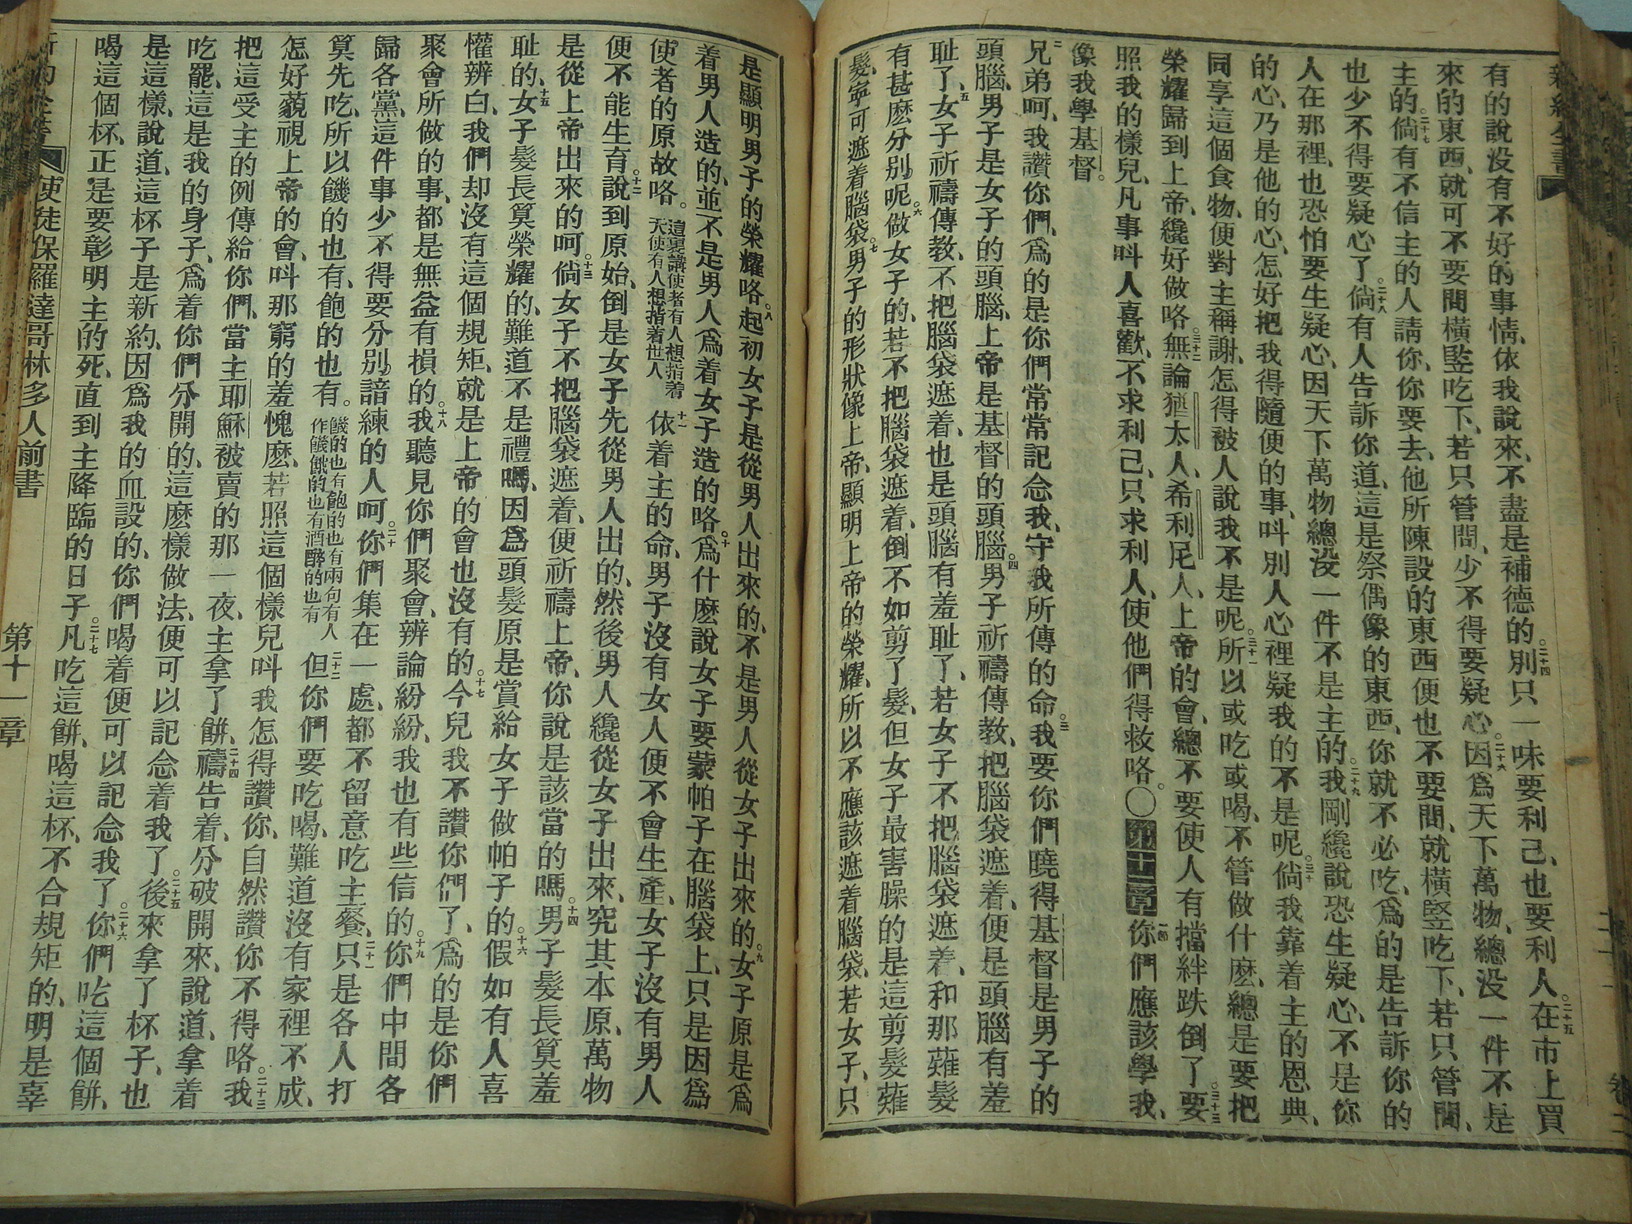 新約全書
有的說没有不好的事情、依我說來、不盡是補德的。二十四別只一味要利己、也要利人、二十五在市上買
來的東西、就可不要問橫竪吃下、若只管問、少不得要疑心。二十六因爲天下萬物、總没一件不是
主的。二十七倘有不信主的人請你、你要去、他所陳設的東西便也不要問、就橫竪吃下、若只管問、
也少不得要疑心了。二十八倘有人告訴你道、這是祭偶像的東西、你就不必吃、爲的是告訴你的
人在那裡、也恐怕要生疑心、因天下萬物總没一件不是主的。二十九我剛纔說恐生疑心、不是你
的心、乃是他的心、怎好把我得隨便的事、呌別人心裡疑我的不是呢。三十倘我靠着主的恩典、
同享這個食物、便對主稱謝、怎得被人說我不是呢。三十一所以或吃或喝、不管做什麽、總是要把
榮耀歸到上帝、纔好做咯。三十二無論猶太人、希利尼人、上帝的會、總不要使人有擋絆跌倒了。三十三要
照我的樣兒、凡事呌人喜歡、不求利己、只求利人、使他們得救咯。〇第十一章一節你們應該學我、
像我學基督。
二兄弟呵、我讚你們、爲的是你們常常記念我、守我所傳的命。三我要你們曉得基督是男子的
頭腦、男子是女子的頭腦、上帝是基督的頭腦。四男子祈禱傳教、把腦袋遮着、便是頭腦有羞
耻了。五女子祈禱傳教、不把腦袋遮着、也是頭腦有羞耻了、若女子不把腦袋遮着、和那薙髮
有甚麽分別呢。六做女子的、若不把腦袋遮着、倒不如剪了髮、但女子最害臊的是這剪髮薙
髮、寧可遮着腦袋。七男子的形狀像上帝、顯明上帝的榮耀、所以不應該遮着腦袋、若女子、只
是顯明男子的榮耀咯。八起初女子是從男人出來的、不是男人從女子出來的。九女子原是爲
着男人造的、並不是男人爲着女子造的咯。十爲什麽說女子要蒙帕子在腦袋上、只是因爲
使者的原故咯。這裏講使者有人想指着天使有人想指着世人十一依着主的命、男子没有女人便不會生產、女子没有男人
便不能生育。十二說到原始、倒是女子先從男人出的、然後男人纔從女子出來、究其本原、萬物
是從上帝出來的呵。十三倘女子不把腦袋遮着、便祈禱上帝、你說是該當的嗎。十四男子髮長算羞
耻的、十五女子髮長算榮耀的、難道不是禮嗎、因爲頭髮原是賞給女子做帕子的。十六假如有人喜
懽辨白、我們却没有這個規矩、就是上帝的會也没有的。十七今兒我不讚你們了、爲的是你們
聚會所做的事、都是無益有損的。十八我聽見你們聚會、辨論紛紛、我也有些信的。十九你們中間各
歸各黨、這件事少不得要分別諳練的人呵。二十你們集在一處、都不留意吃主餐、二十一只是各人打
算先吃、所以饑的也有、飽的也有。饑的也有飽的也有兩句有人作饑餓的也有酒醉的也有二十二但你們要吃喝、難道没有家裡不成、
怎好藐視上帝的會、呌那窮的羞愧麽、若照這個樣兒呌我怎得讚你、自然讚你不得咯。二十三我
把這受主的例傳給你們、當主耶穌被賣的那一夜、主拿了餅、二十四禱告着、分破開來、說道、拿着
吃罷、這是我的身子、爲着你們分開的、這麽樣做法、便可以記念着我了。二十五後來拿了杯子、也
是這樣、說道、這杯子是新約、因爲我的血設的、你們喝着便可以記念我了。二十六你們吃這個餅、
喝這個杯、正是要彰明主的死、直到主降臨的日子。二十七凡吃這餅、喝這杯、不合規矩的、明是辜
使徒保羅達哥林多人前書
第十一章